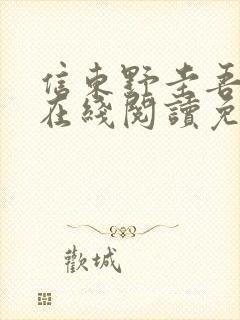 信東野圭吾
在綫閱讀免
歡城